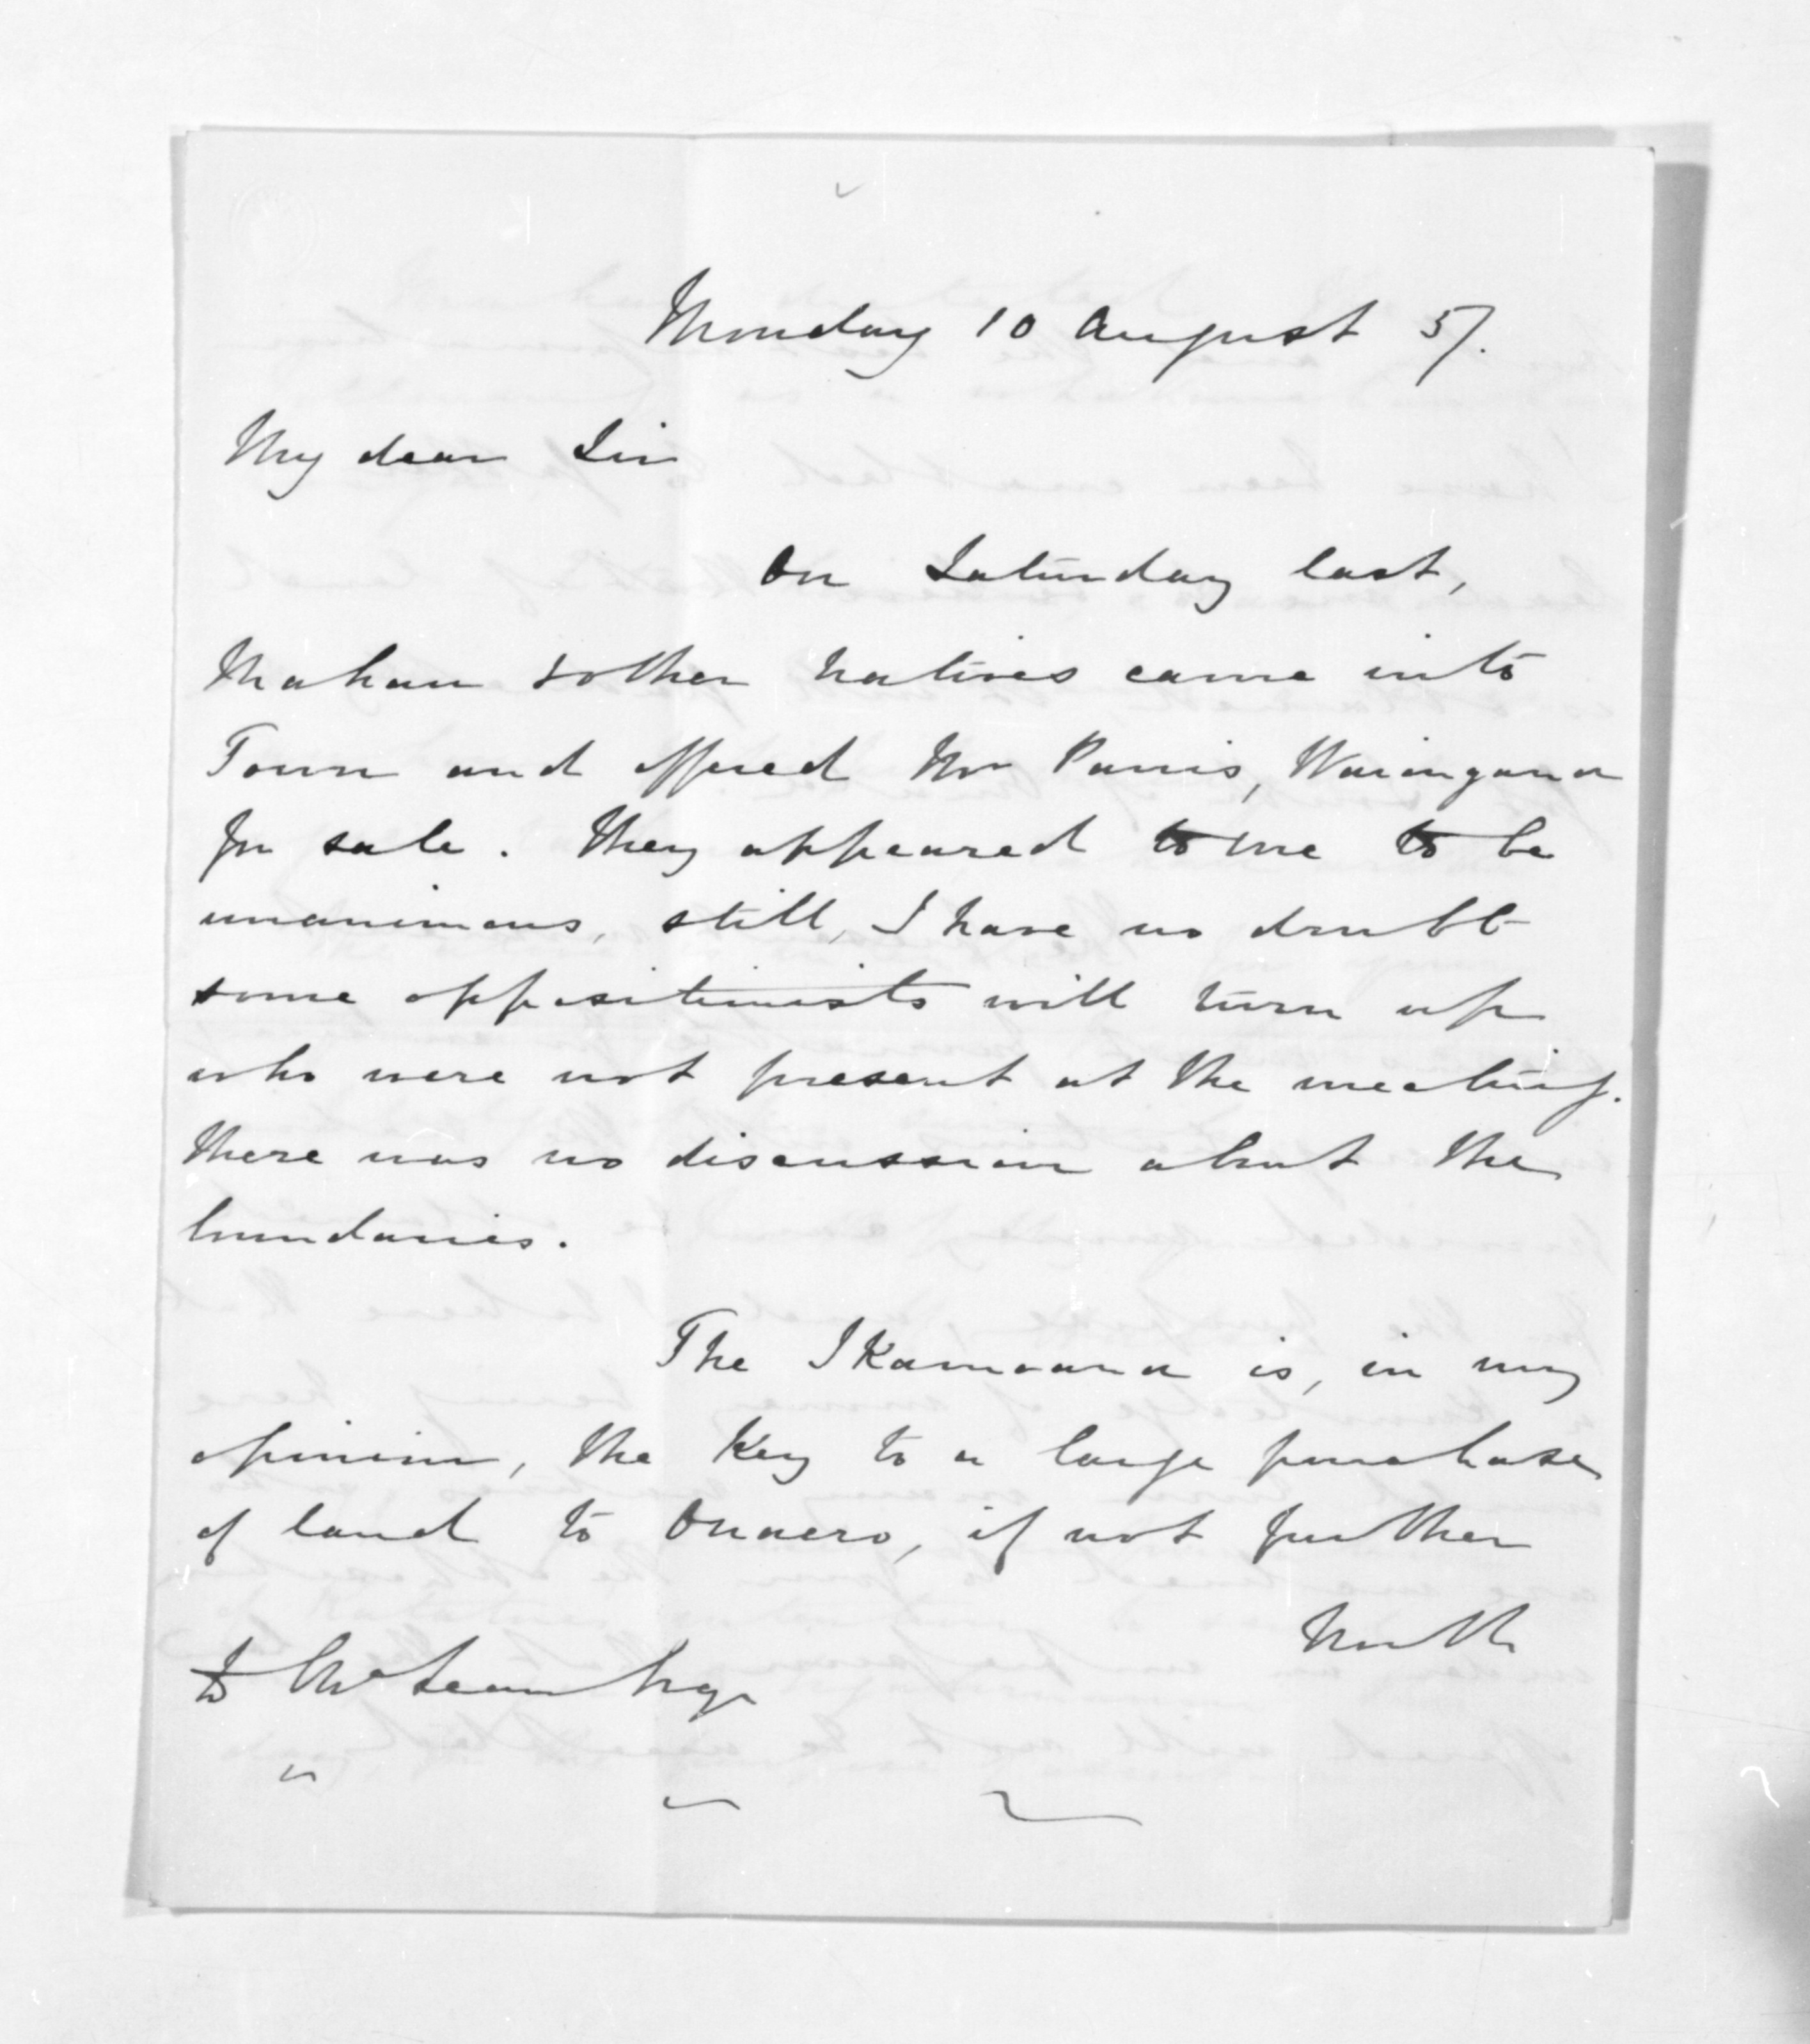 Monday 10 August 57.
My dear Sir
On Saturday last,
Mahau & other natives came into
Town and offered Mr Parris, Waiongana
for sale. They appeared to me to be
unanimous, still, I have no doubt
some oppositionists will turn up
who were not present at the meeting.
There was no discussion about the
boundaries.
The Ikamoana is, in my
opinion, the Key to a large purchase
of land to Onaero, if not further
North
D McLean Esqr